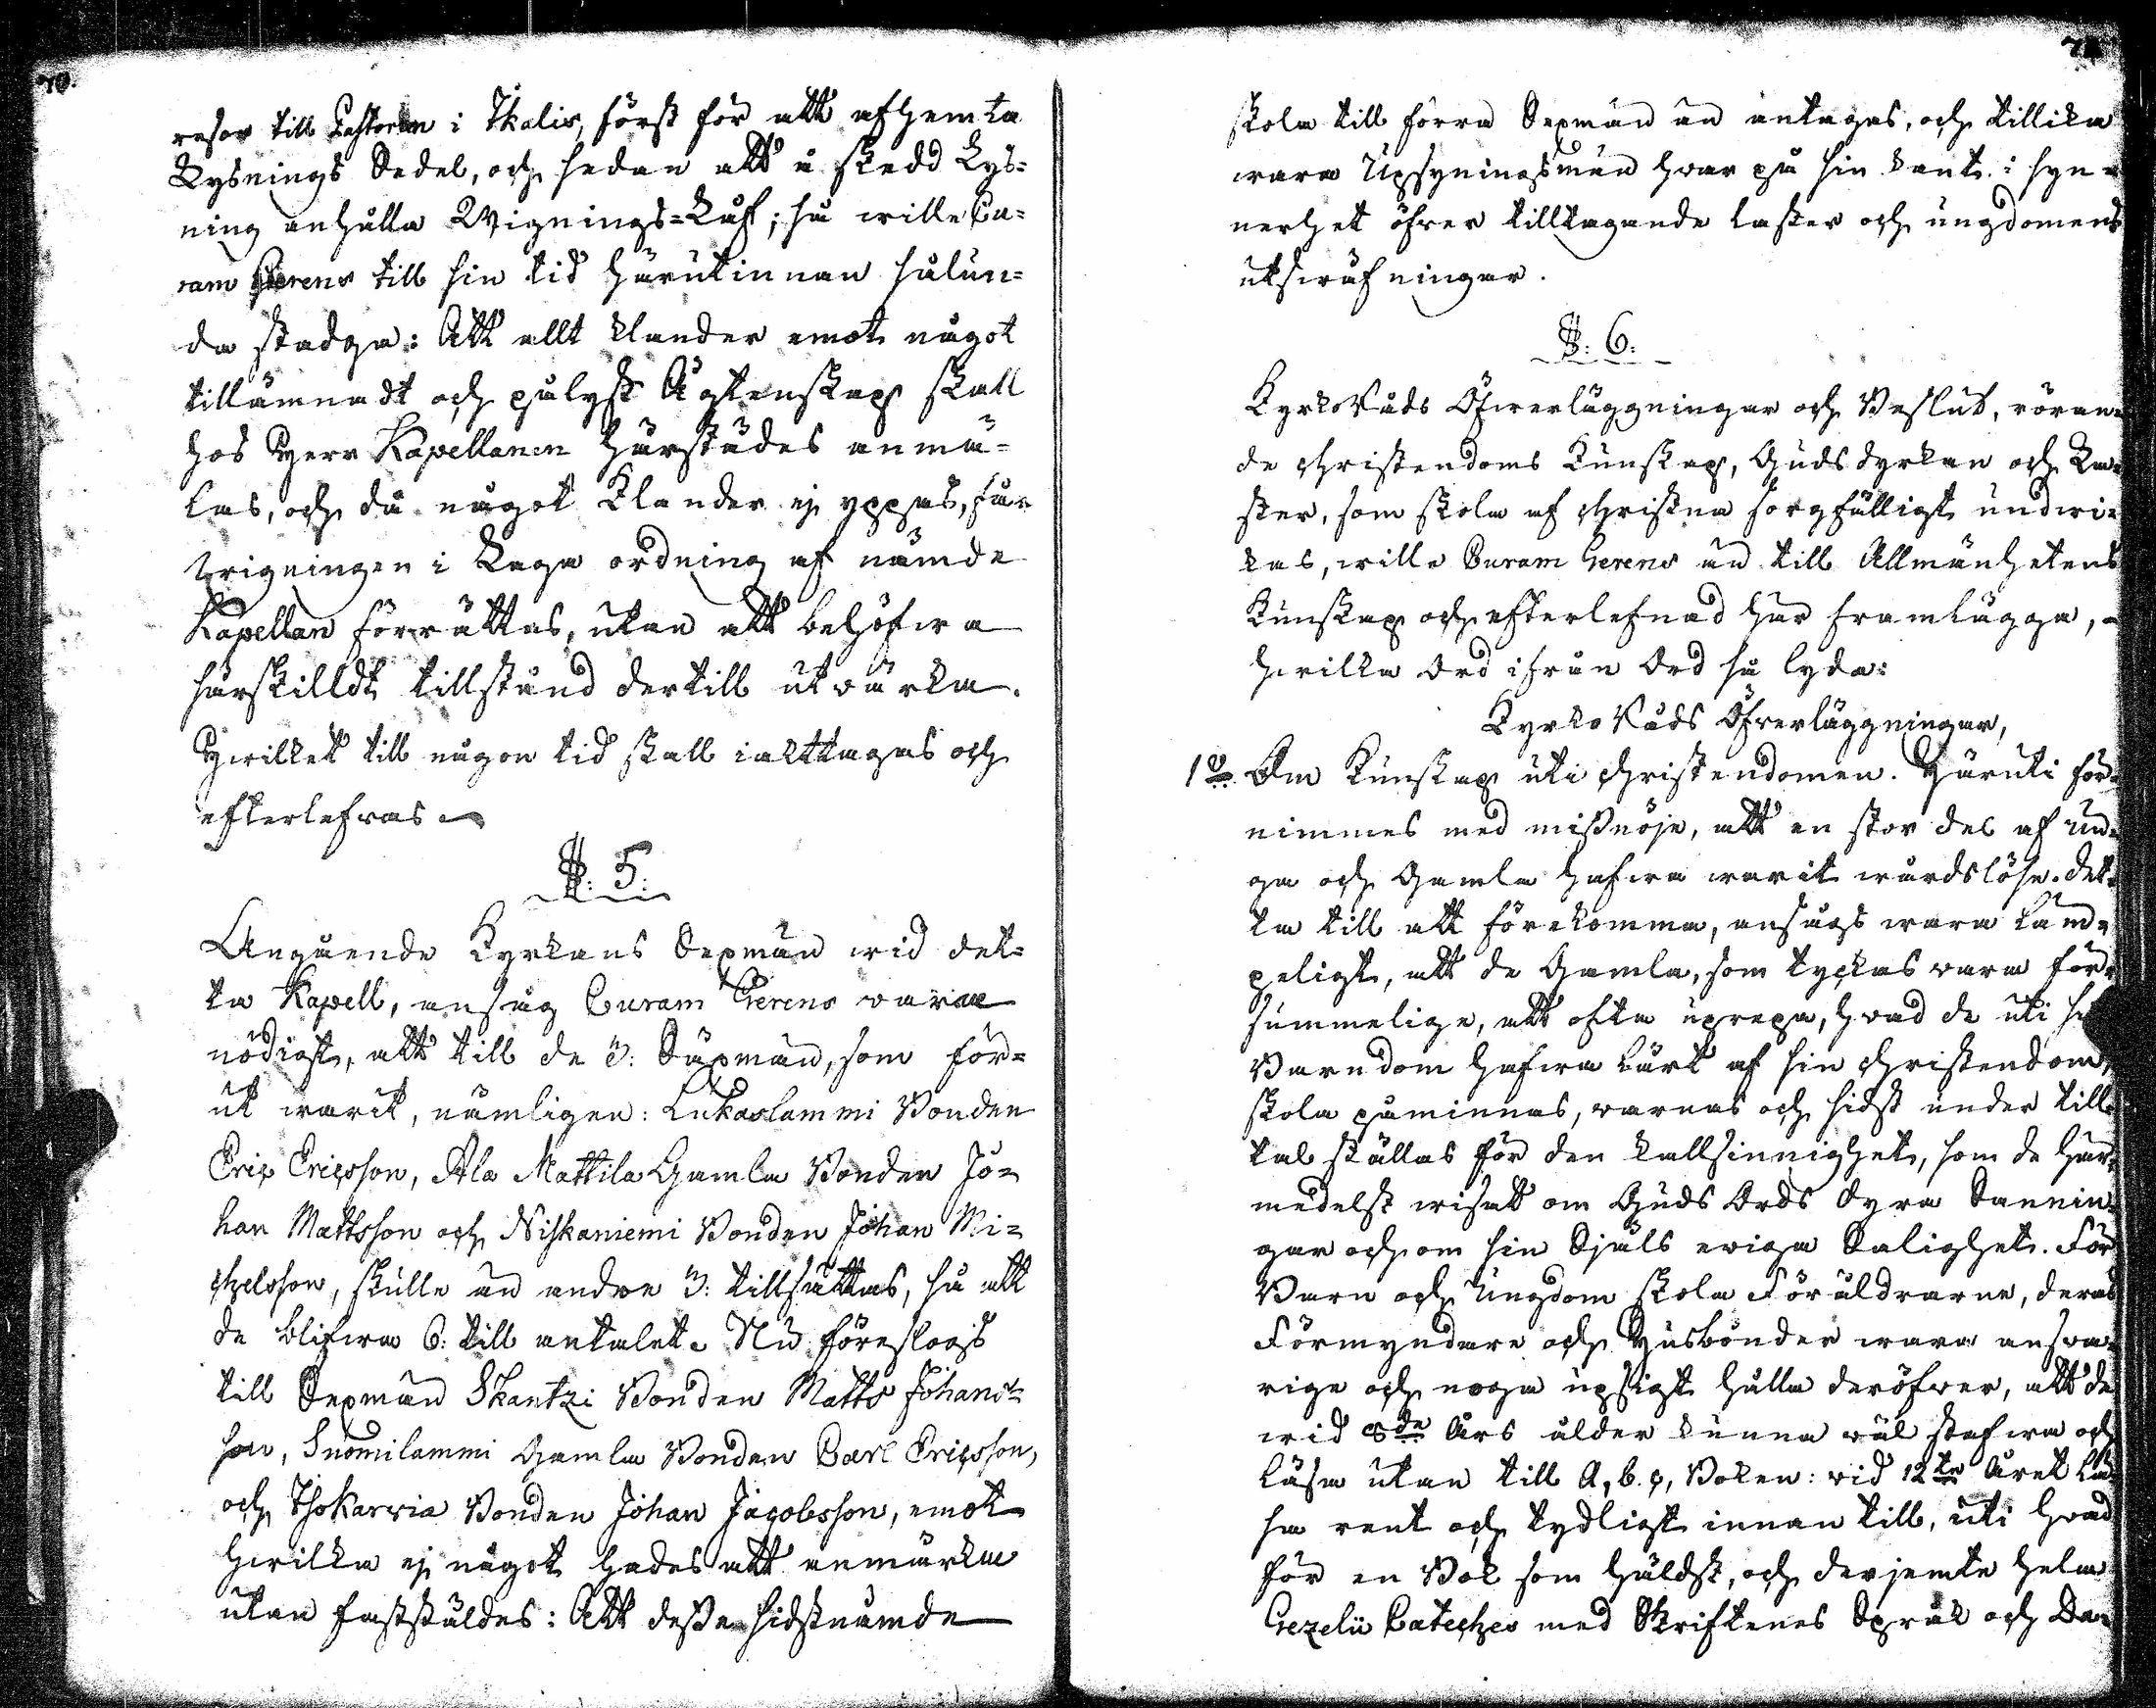 70.
resor till Pastoren i Ikalis, först för att afhemta
Lysnings Sedel, och sedan att å skedd Lys=
ning anhålla Wignings=Låf; så wille Cu=
ram Gerens till sin tid härutinnan sålun=
da stadga: Att allt klander emot något
tillämnadt och pålyst Ägtenskap skall
hos Herr Kapellanen härstädes anmä=
las, och då något Klander ej yppas, får
wigningen i Laga ordning af nämde
Kapellan förrättas, utan att behöfwa
särskilldt tillstånd dertill utvärka.
Hwilket till någon tid skall iakttagas och
efterlefwas.
§. 5.
Angående Kyrkans Sexmän wid det=
ta Kapell, ansåg Curam Gerens vara
nödigt, att till de 3: Säxmän, som för=
ut warit, nämligen: Lukaslammi Bonden
Eric Ericsson, Ala Mattila Gamla Bonden Jo=
han Mattsson och Niskaniemi Bonden Johan Mi=
chelsson, skulle än andre 3: tillsättas, så att
de blifwa 6: till antalet. Nu föreslogs
till Sexmän Skantzi Bonden Matts Johans=
son, Suomilammi Gamla Bonden Carl Ericsson,
och Isokarvia Bonden Johan Jacobsson, emot
hwilka ej något hades att anmärka
utan fastställdes: Att dessa sidstnämde
71
skola till förra Sexmän än antagas, och tillika
wara Upsyningsmän hwar på sin kant. i syn=
nerhet öfwer tilltagande laster och ungdomens
utswäfningar.
§. 6.
KyrkoRåds Öfwerläggningar och Beslut, röran=
de christendoms Kunskap, Guds dyrkan och La=
ster, som skola af christna sorgfälligt undwi=
kas, wille Curam Gerens än till Allmänhetens
Kunskap och efterlefnad här framlägga,
hwilka Ord ifrån Ord så lyda:
KyrkoRåds Öfwerläggningar,
1o. Om Kunskap uti christendomen. Häruti för=
nimmes med missnöje, att en stor del af Un=
ga och Gamla hafwa warit wårdslöse. det=
ta till att förekomma, ansågs wara läm=
peligt, att de Gamla, som tyckas vara för=
summelige, att ofta uprepa, hwad de uti
Barndom hafwa lärt af sin christendom,
skola påminnas, warnas och sidst under till=
tal ställas för den kallsinnighet, som de här=
medelst wisat om Guds Ords dyra Sannin=
gar och om sin Själs ewiga Salighet. För
Barn och Ungdom skola Föräldrarne, deras
Förmyndare och Husbönder wara answa=
rige och noga upsigt hålla deröfwer, att de
wid 8de Års ålder kunna wäl stafwa och
läsa utan till A, b. c, Boken: vid 12te Året lä=
sa rent och tydligt innan till, uti hwad
för en Bok som hälldst, och derjemte hela
Gezelii Cateches med Skriftenes Språk och Da=